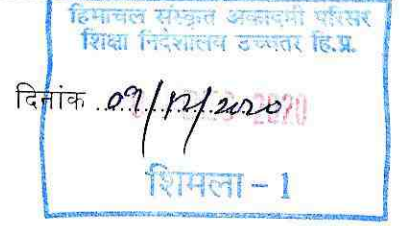 हिमाचल संस्कृत अकादमी परिसर
शिक्षा निदेशालय उच्चतर हि.प्र.
दिनांक 09/12/2020
शिमला - 1